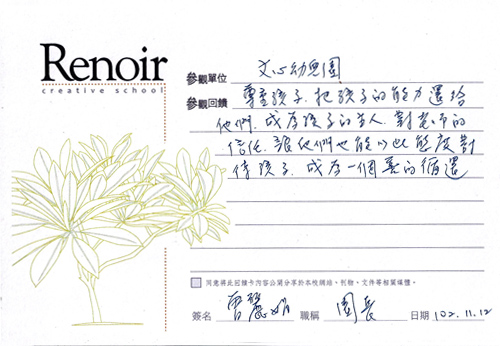 Renoir
creative school
參觀單位 文心幼兒園
參觀回饋 尊重孩子，把孩子的能力還給
他們，成為孩子的主人，對老師的
信任，讓他們也能以此態度對
待孩子，成為一個善的循環
同意將此回饋卡內容公開分享於本校網站、刊物、文件等相關媒體。
簽名 曾麗娟 職稱 園長 日期 102.11.12